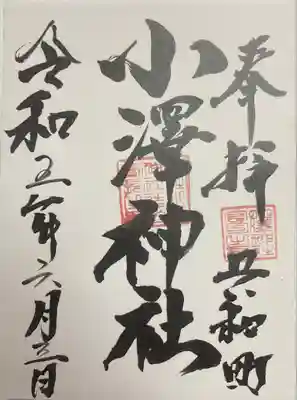 奉拝 共和町
小澤神社
令和五年六月 日